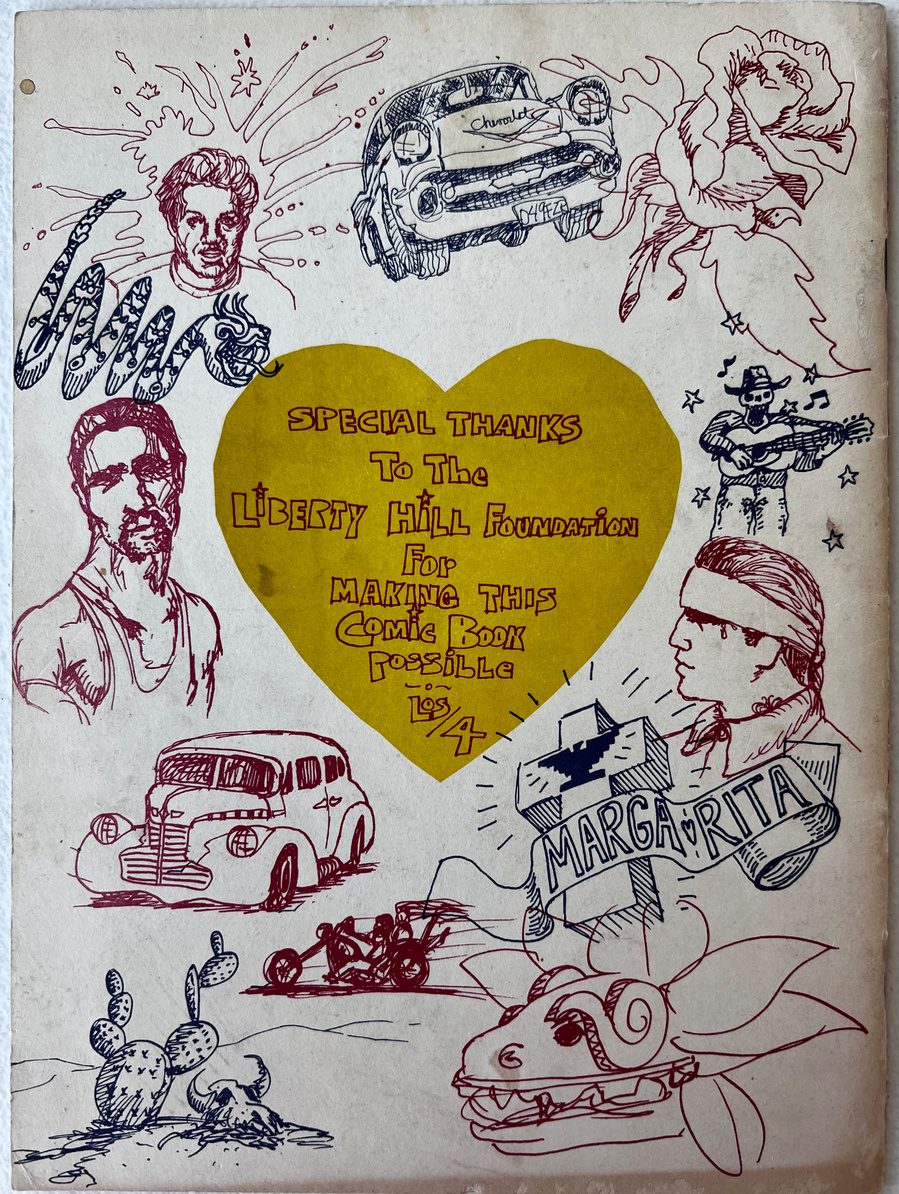 Chevrolet
SPECIAL THANKS
To The
LiBERTY HiLL FOUNDATiON
For
MAKING THIS
COMiC BOOK
POSSiBLE
LOS/4
MARGARITA